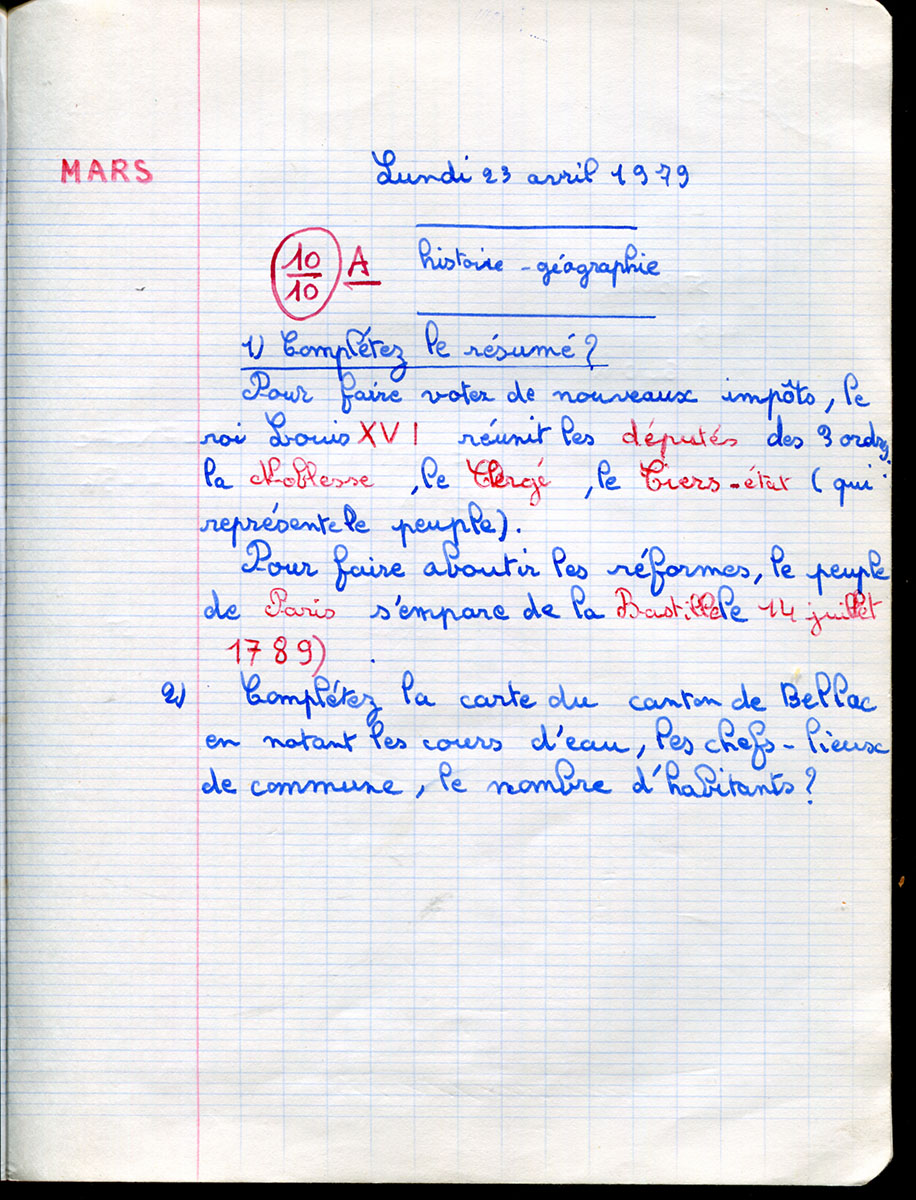 MARS
Lundi 23 avril 1979
10/10 A
histoire - géographie
1) Complétez le résumé ?
Pour faire voter de nouveaux impôts, le
roi Louis XVI réunit les députés des 3 ordres :
la Noblesse, le Clergé, le Tiers-état (qui
représente le peuple).
Pour faire aboutir les réformes, le peuple
de Paris s'empare de la Bastille le 14 juillet
1789) .
2) Complétez la carte du canton de Bellac
en notant les cours d'eau, les chefs-lieux
de commune, le nombre d'habitants ?